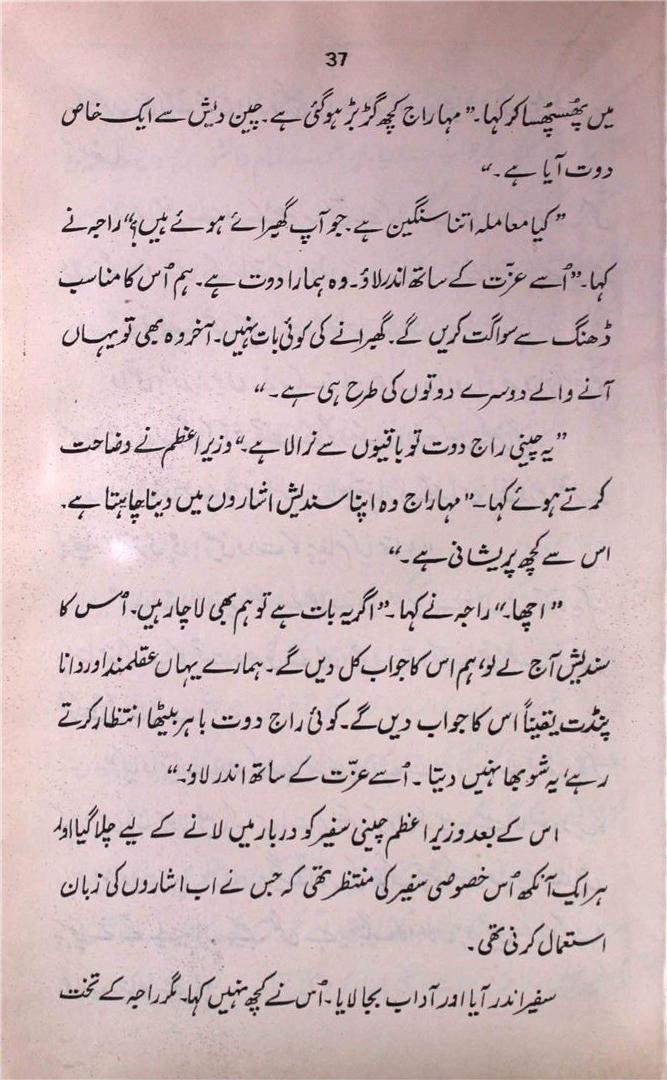 37
میں پھُسپھُسا کر کہا۔ ”مہاراج کچھ گڑبڑ ہوگئی ہے۔ چین دیش سے ایک خاص
دوت آیا ہے۔“
”کیا معاملہ اتنا سنگین ہے۔ جو آپ گھبرائے ہوئے ہیں؟“ راجہ نے
کہا۔ ”اُسے عزّت کے ساتھ اندر لاؤ۔ وہ ہمارا دوت ہے۔ ہم اُس کا مناسب
ڈھنگ سے سواگت کریں گے۔ گھبرانے کی کوئی بات نہیں۔ آخر وہ بھی تو یہاں
آنے والے دوسرے دوتوں کی طرح ہی ہے۔“
”یہ چینی راج دوت تو باقیوں سے نرالا ہے۔“ وزیر اعظم نے وضاحت
کرتے ہوئے کہا۔ ”مہاراج وہ اپنا سندیش اشاروں میں دینا چاہتا ہے۔
اس سے کچھ پریشانی ہے۔“
”اچھا۔“ راجہ نے کہا۔ ”اگر یہ بات ہے تو ہم بھی لاچار ہیں۔ اُس کا
سندیش آج لے لو، ہم اس کا جواب کل دیں گے۔ ہمارے یہاں عقلمند اور دانا
پنڈت یقیناً اس کا جواب دیں گے۔ کوئی راج دوت باہر بیٹھا انتظار کرتے
رہے، یہ شوبھا نہیں دیتا۔ اُسے عزّت کے ساتھ اندر لاؤ۔“
اس کے بعد وزیر اعظم چینی سفیر کو دربار میں لانے کے لیے چلا گیا اور
ہر ایک آنکھ اُس خصوصی سفیر کی منتظر تھی کہ جس نے اب اشاروں کی زبان
استعمال کرنی تھی۔
سفیر اندر آیا اور آداب بجا لایا۔ اُس نے کچھ نہیں کہا۔ مگر راجہ کے تخت